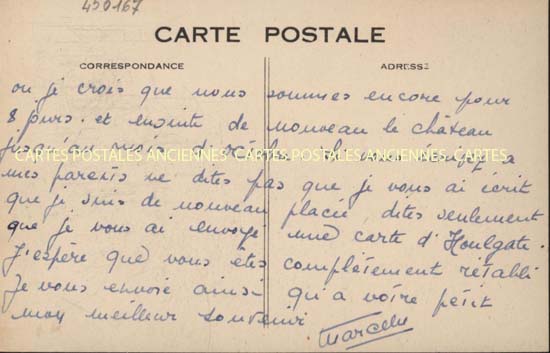 450167
CARTE POSTALE
CORRESPONDANCE
ADRESSE
ou je crois que nous sommes encore pour
8 jours. et ensuite de nouveau le château
jusqu'au mois d'
CARTES POSTALES ANCIENNES CARTES POSTALES ANCIENNES CARTES
mes parents ne dites pas que je vous ai écrit
que je suis de nouveau placée, dites seulement
que je vous ai envoyé une carte d'Houlgate.
J'espère que vous êtes complètement rétabli
Je vous envoie ainsi qu'a votre petit
mon meilleur souvenir
Marcelle